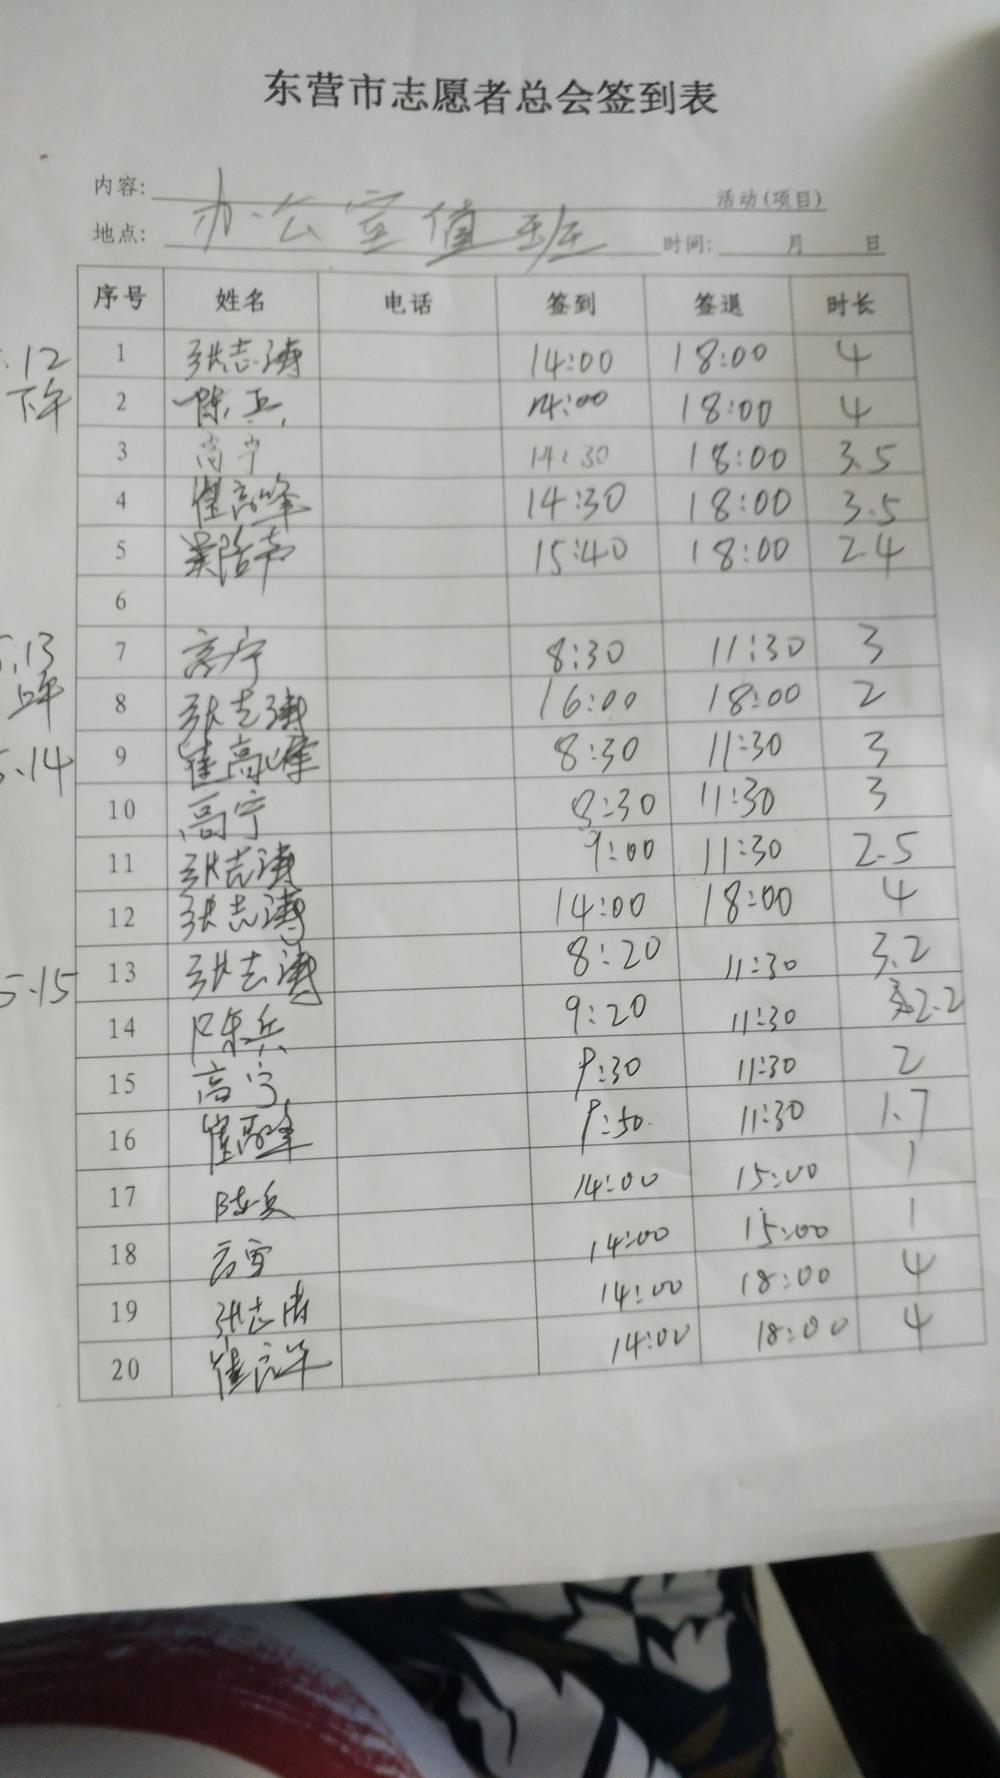 东营市志愿者总会签到表
内容: 活动(项目)
办公室值班
地点: 时间: 月 日
序号 姓名 电话 签到 签退 时长
.12 1 张志涛 14:00 18:00 4
下午 2 陈兵 14:00 18:00 4
3 高宁 14:30 18:00 3.5
4 崔高峰 14:30 18:00 3.5
5 15:40 18:00 2.4
6
5.13 7 高宁 8:30 11:30 3
上午 8 张志涛 16:00 18:00 2
5.14 9 崔高峰 8:30 11:30 3
10 高宁 8:30 11:30 3
11 张志涛 9:00 11:30 2.5
12 张志涛 14:00 18:00 4
5.15 13 张志涛 8:20 11:30 3.2
14 陈兵 9:20 11:30 2.2
15 高宁 9:30 11:30 2
16 崔高峰 9:50 11:30 1.7
17 陈兵 14:00 15:00 1
18 14:00 15:00 1
19 张志涛 14:00 18:00 4
20 崔高峰 14:00 18:00 4